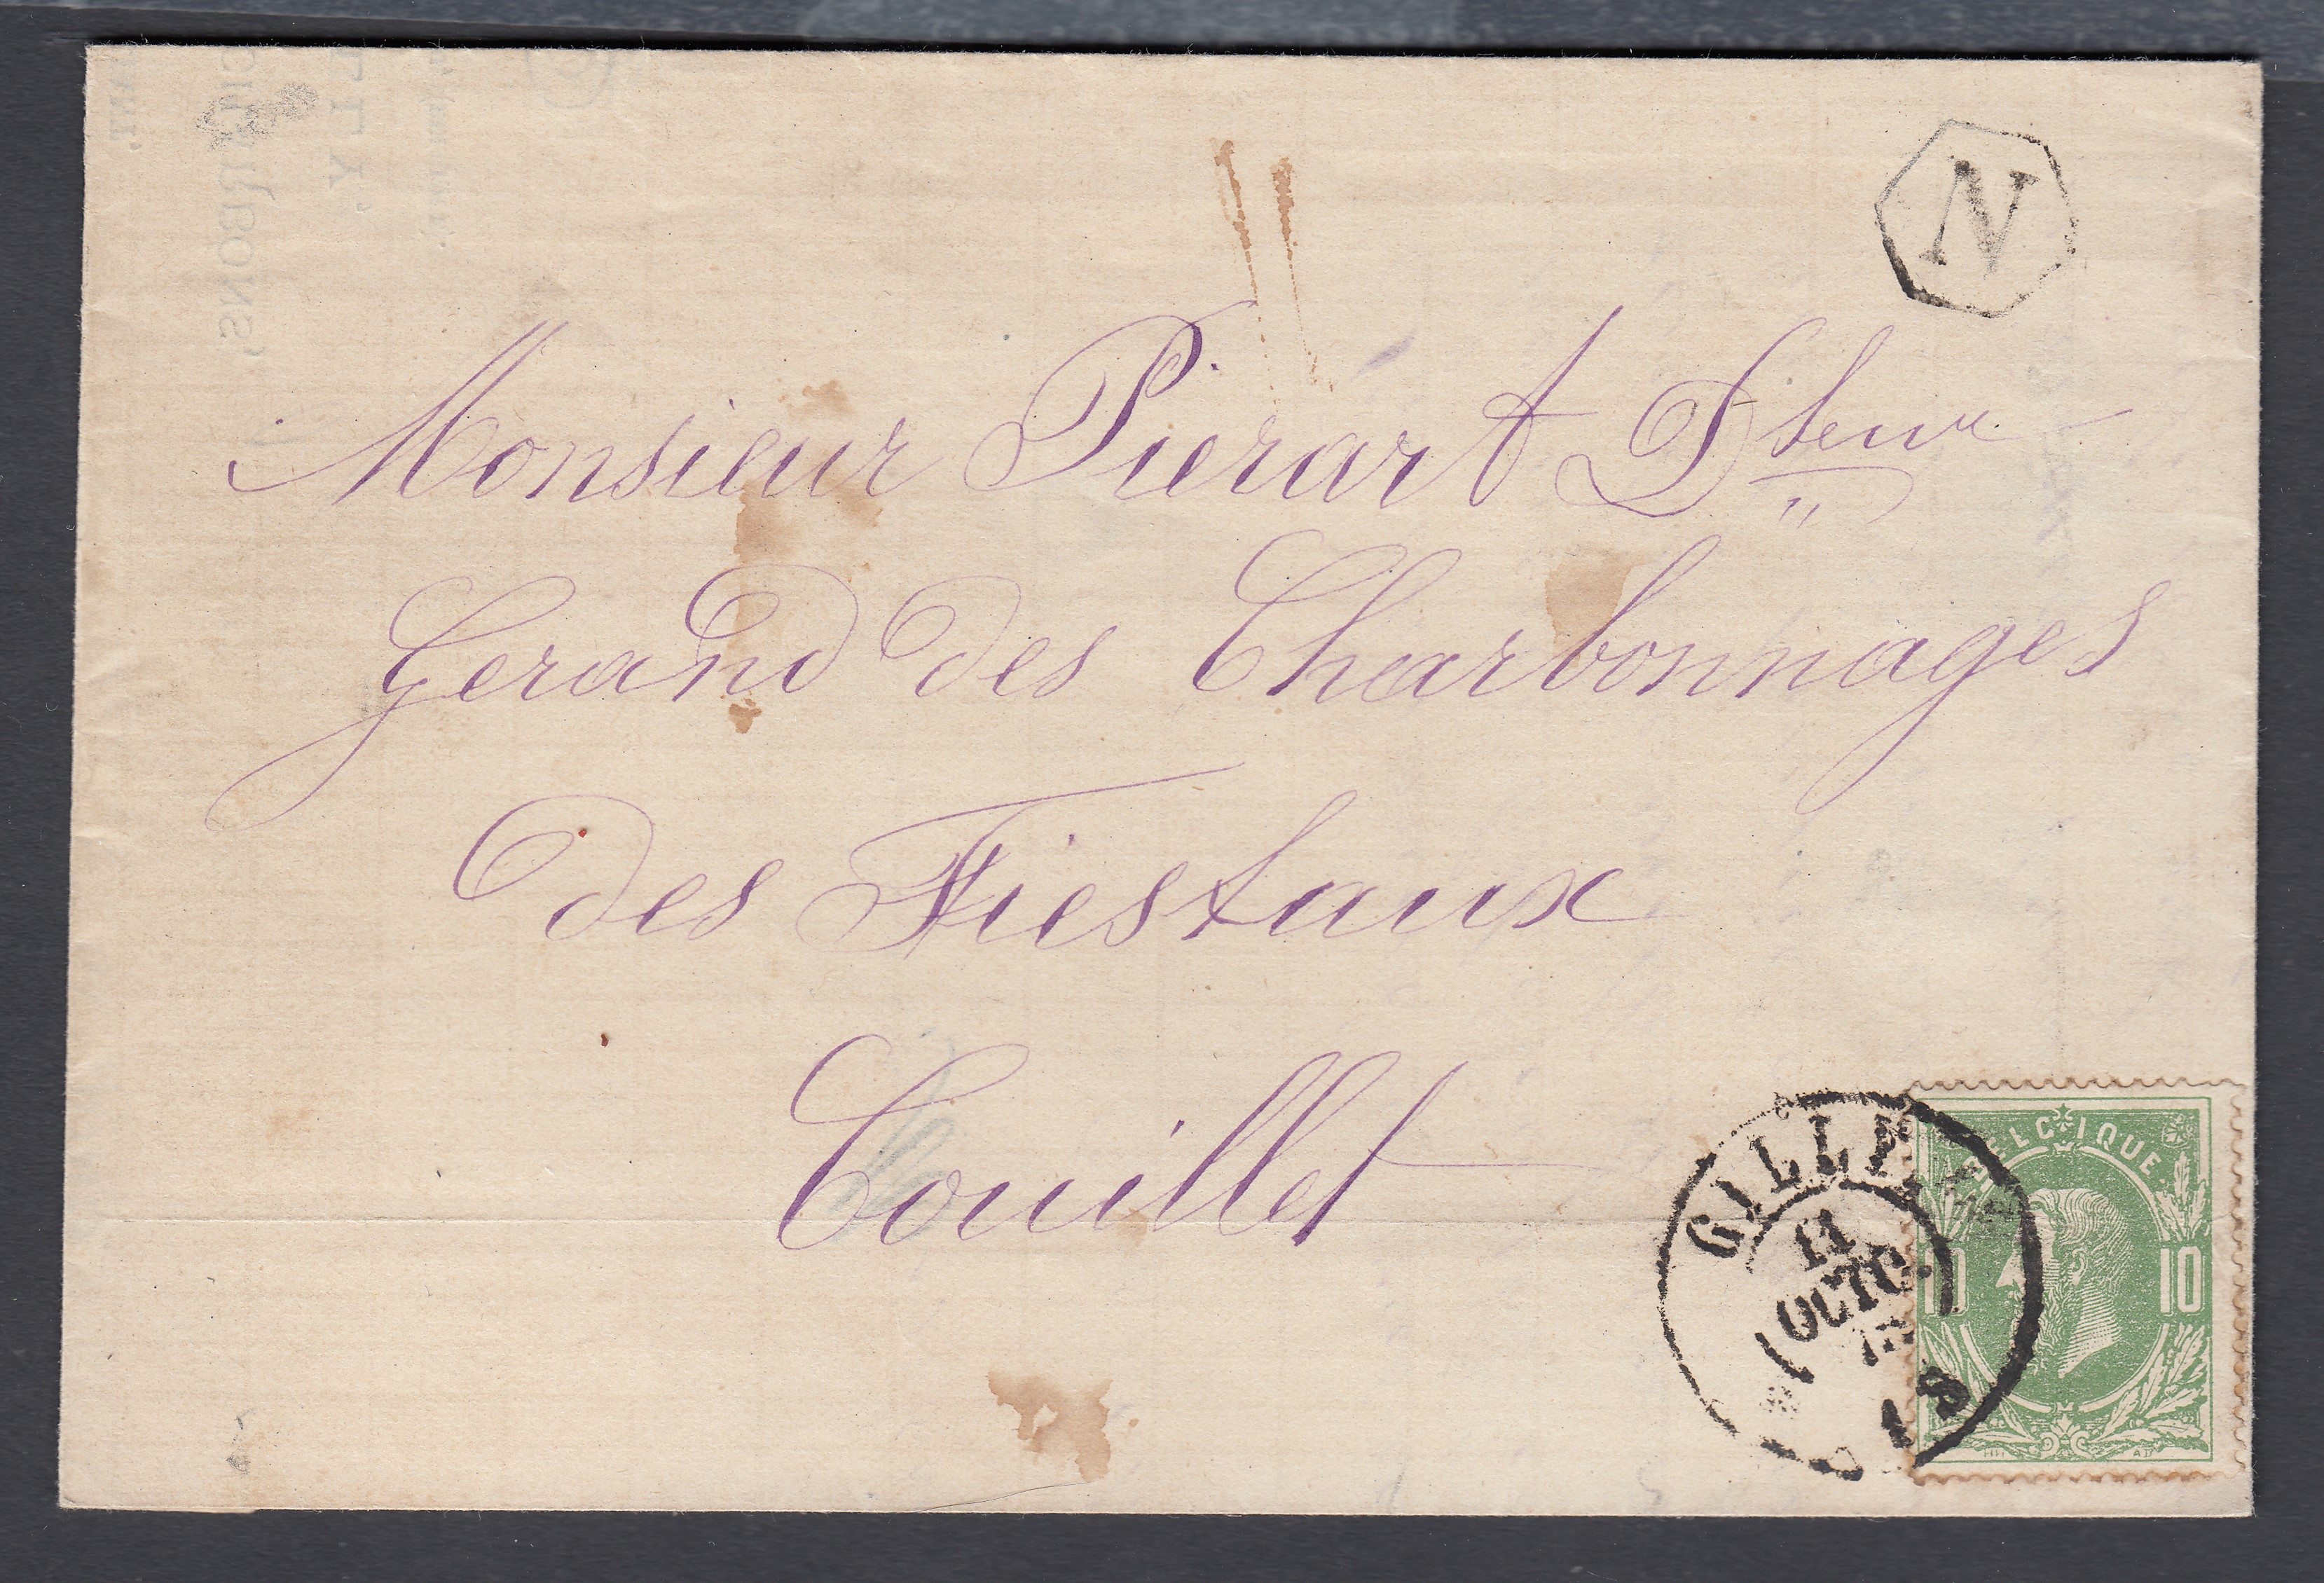 N
Monsieur Piérart Dteur
Gerand des Charbonnages
des Fiestaux
Couillet
GILLY
11
OCTO.
BELGIQUE
10